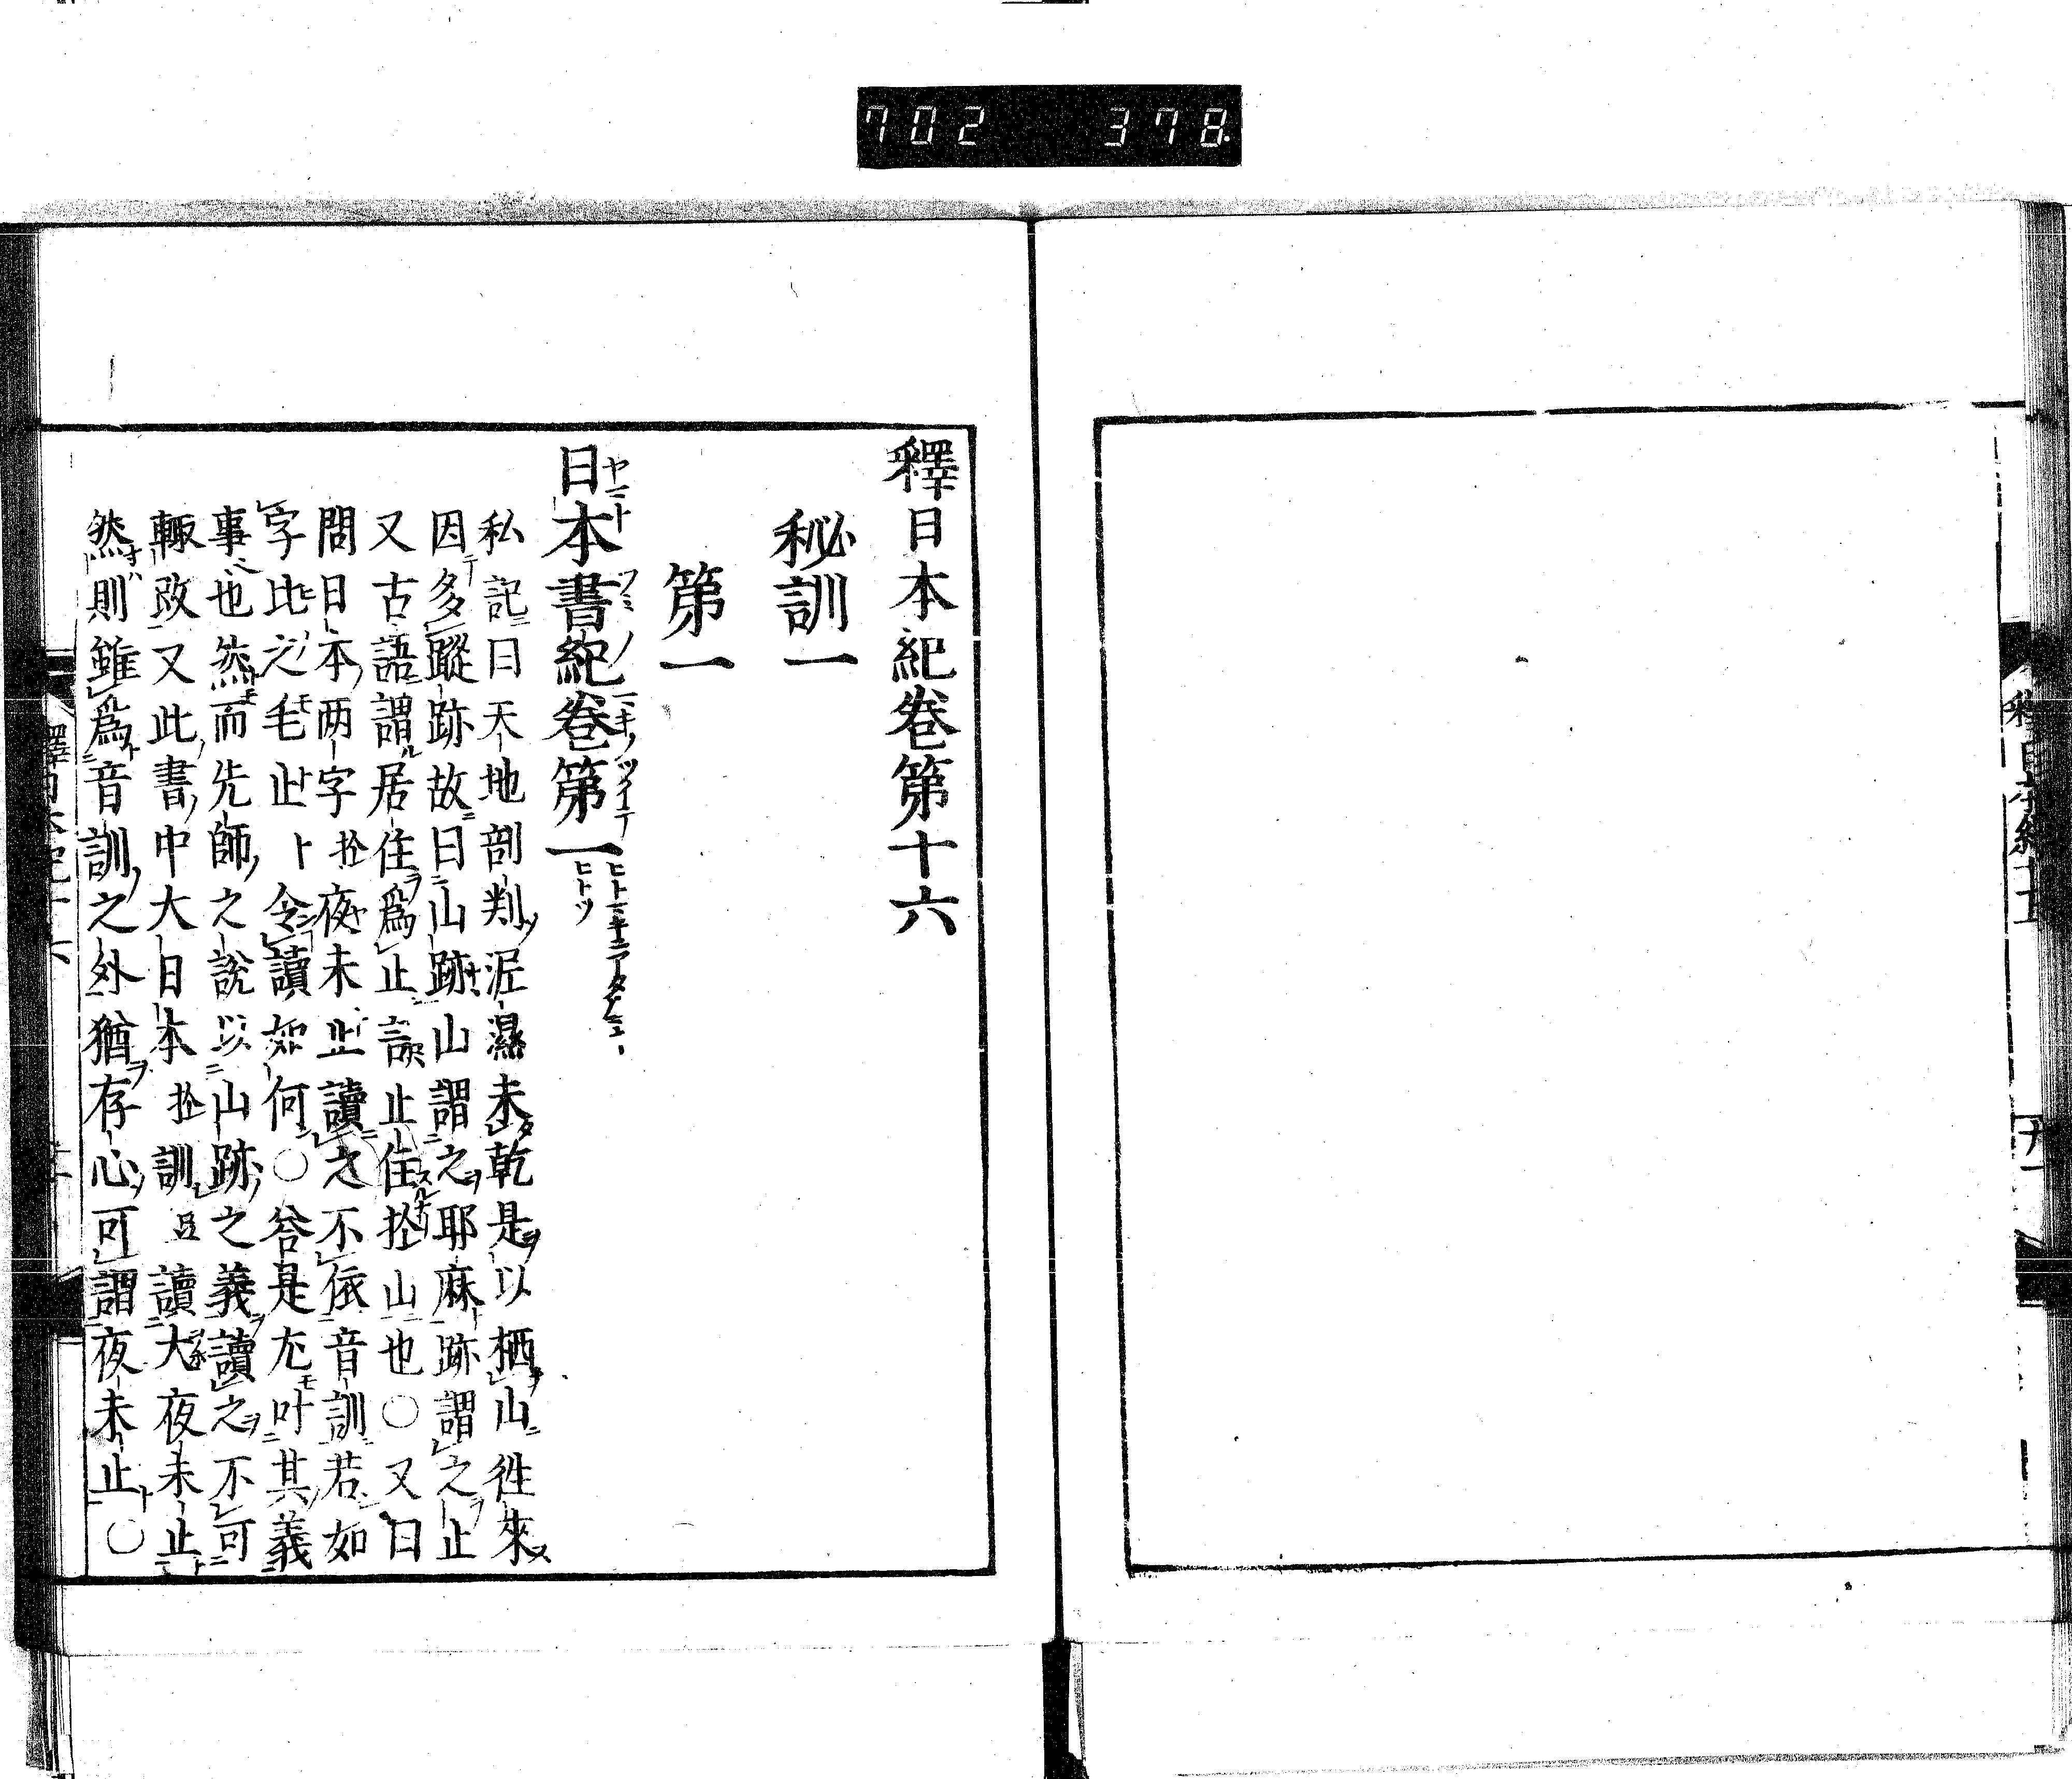 702 378
釋日本紀卷第十六
秘訓一
第一
日本書紀卷第一
私記曰天地剖判泥濕未乾是以栖山徃來
因多蹤跡故曰山跡山謂之耶麻跡謂之止
又古語謂居住爲止言止住於山也〇又曰
問日本两字於夜末止讀之不依音訓若如
字比之毛止ト令讀如何〇荅是尤叶其義
事也然而先師之說以山跡之義讀之不可
輙改又此書中大日本於訓且讀大夜末止
然則雖爲音訓之外猶存心可謂夜末止〇